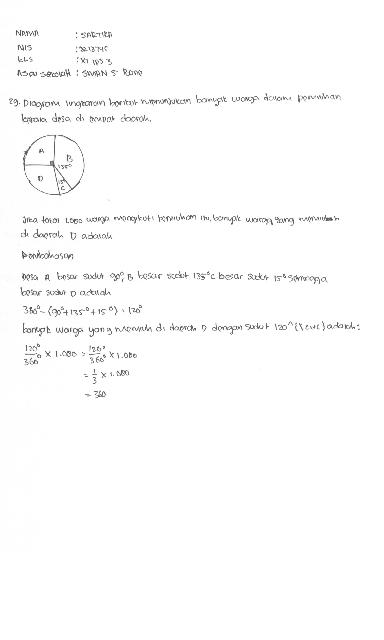 NAMA : SARTIKA
NIS
KLS : XI IPS 3
Asal sekolah : SMAN 5
29. Diagram lingkaran berikut menunjukan banyak warga dalam pemilihan
kepala desa di empat daerah.
A
B
135°
D
15°
C
Jika total 1.080 warga mengikuti pemilihan ini, banyak warga yang memilih
di daerah D adalah
Pembahasan
Desa A besar sudut 90°, B besar sudut 135° C besar sudut 15° sehingga
besar sudut D adalah
360° - (90° + 135° + 15°) = 120°
banyak warga yang memilih di daerah D dengan sudut 120° adalah :
120°/360° × 1.080 = 120°/360° × 1.080
= 1/3 × 1.080
= 360